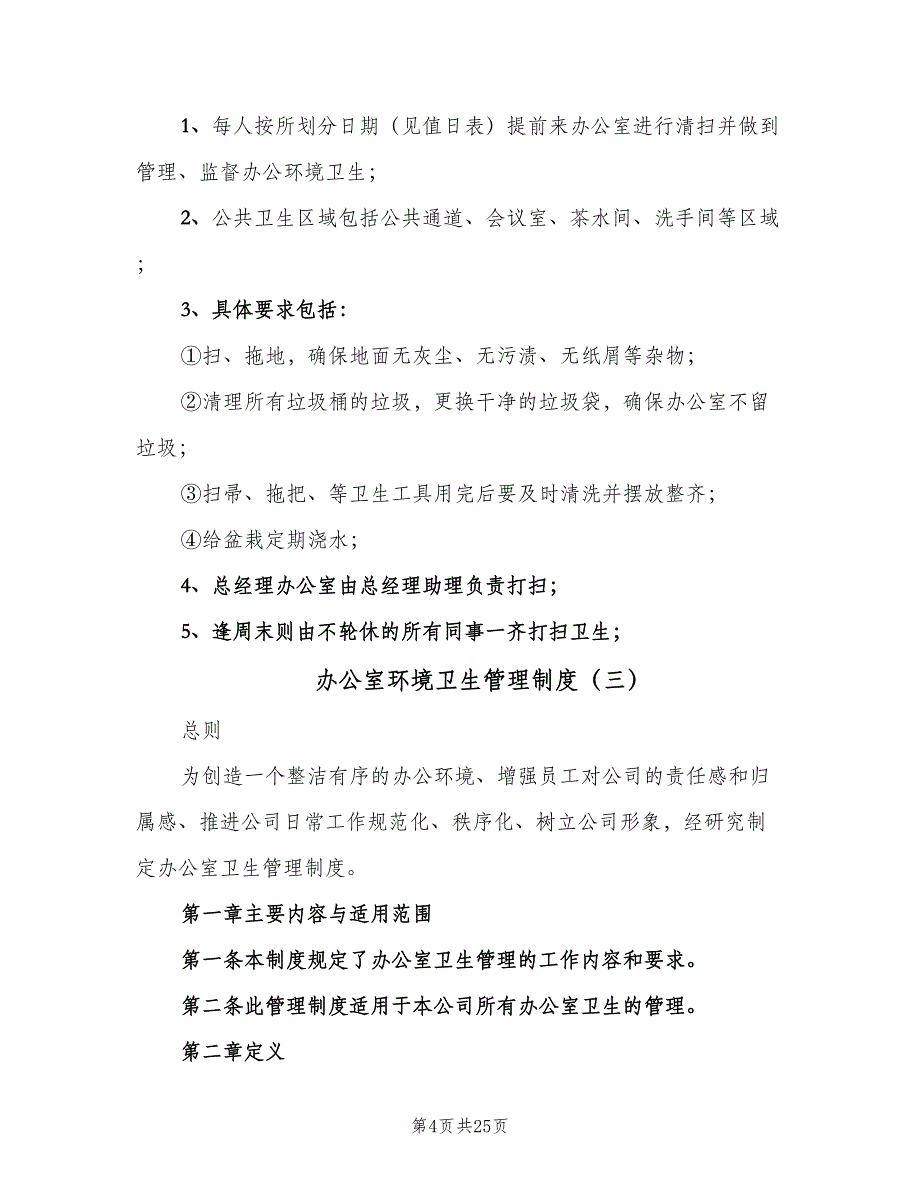 1、每人按所划分日期（见值日表）提前来办公室进行清扫并做到
管理、监督办公环境卫生；
2、公共卫生区域包括公共通道、会议室、茶水间、洗手间等区域
；
3、具体要求包括：
①扫、拖地，确保地面无灰尘、无污渍、无纸屑等杂物；
②清理所有垃圾桶的垃圾，更换干净的垃圾袋，确保办公室不留
垃圾；
③扫帚、拖把、等卫生工具用完后要及时清洗并摆放整齐；
④给盆栽定期浇水；
4、总经理办公室由总经理助理负责打扫；
5、逢周末则由不轮休的所有同事一齐打扫卫生；
办公室环境卫生管理制度（三）
总则
为创造一个整洁有序的办公环境、增强员工对公司的责任感和归
属感、推进公司日常工作规范化、秩序化、树立公司形象，经研究制
定办公室卫生管理制度。
第一章主要内容与适用范围
第一条本制度规定了办公室卫生管理的工作内容和要求。
第二条此管理制度适用于本公司所有办公室卫生的管理。
第二章定义
第4页共25页